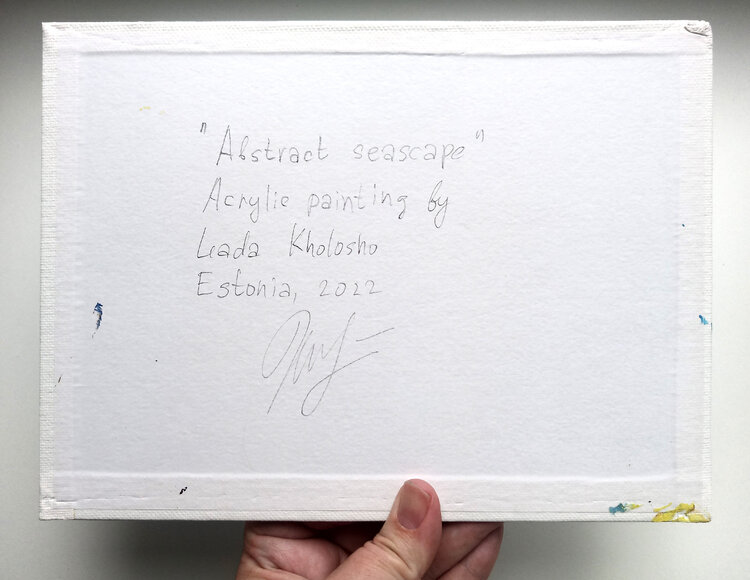 "Abstract seascape"
Acrylic painting by
Liada Kholosho
Estonia, 2022